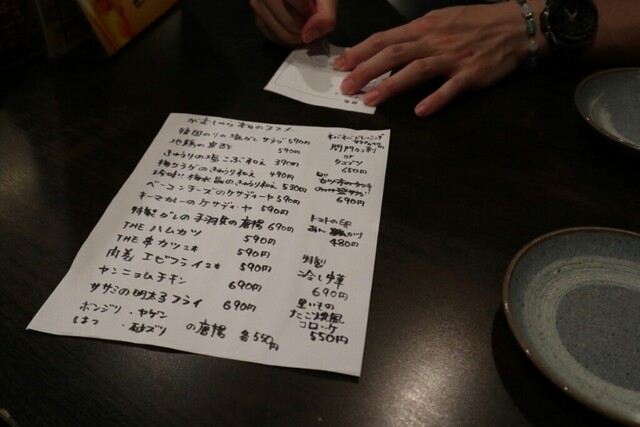 本日のススメ
韓国のりの塩ダレサラダ 590円
590円
きゅうりの塩こぶ和え 390円
梅クラゲのきゅうり和え 490円
珍味!! 梅水晶のきゅうり和え 530円
ベーコンチーズのケサディーヤ 590円
キーマカレーのケサディーヤ 590円
特製ダレの手羽先の唐揚 690円
THE ハムカツ 590円
THE 串カツ 2本 590円
肉巻エビフライ 2本 590円
ヤンニョムチキン 690円
ササミの明太子フライ 690円
ボンジリ・ヤゲン
はつ・砂ズリ の唐揚 各550円
ネバネバドレッシング
or
タコブツ
650円
690円
トマトの卵
あん
480円
特製
冷し
690円
里いもの
たこ焼風
コロッケ
550円